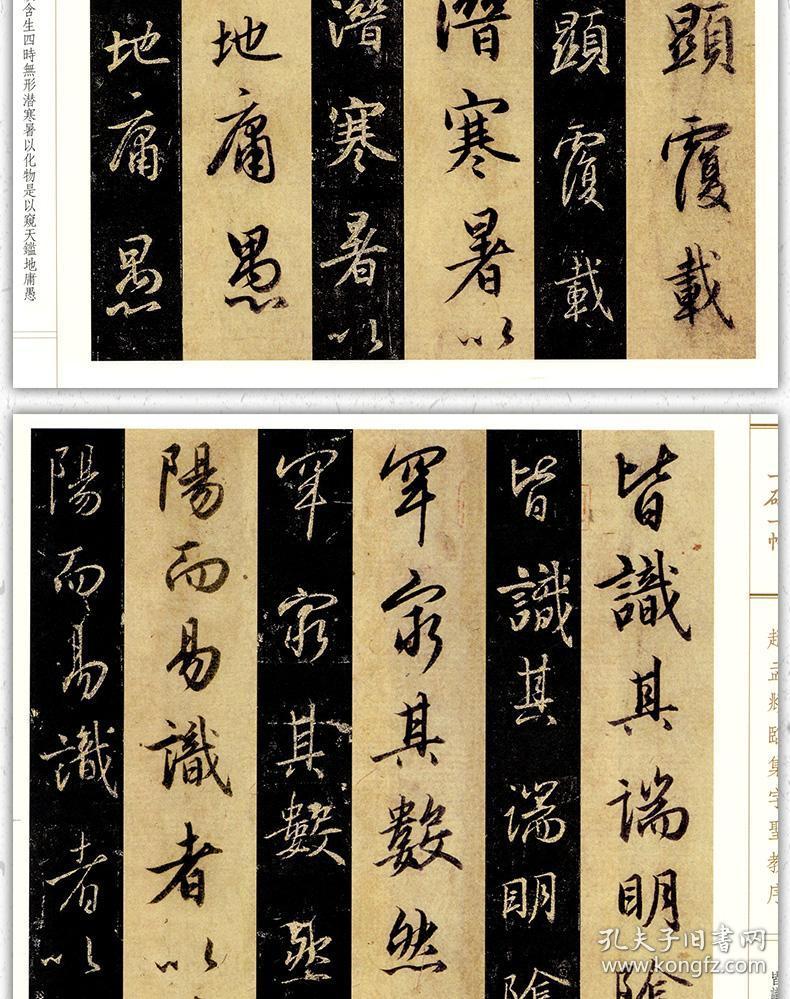 顯覆載
顯覆載
潛寒暑以
潛寒暑以
地庸愚
地庸愚
含生四時無形潜寒暑以化物是以窺天鑑地庸愚
一碑一帖
趙孟頫臨集字聖教序
皆識其端明陰
皆識其端明陰
罕窮其數然
罕窮其數然
陽而易識者以
陽而易識者以
孔夫子旧书网
www.kongfz.com